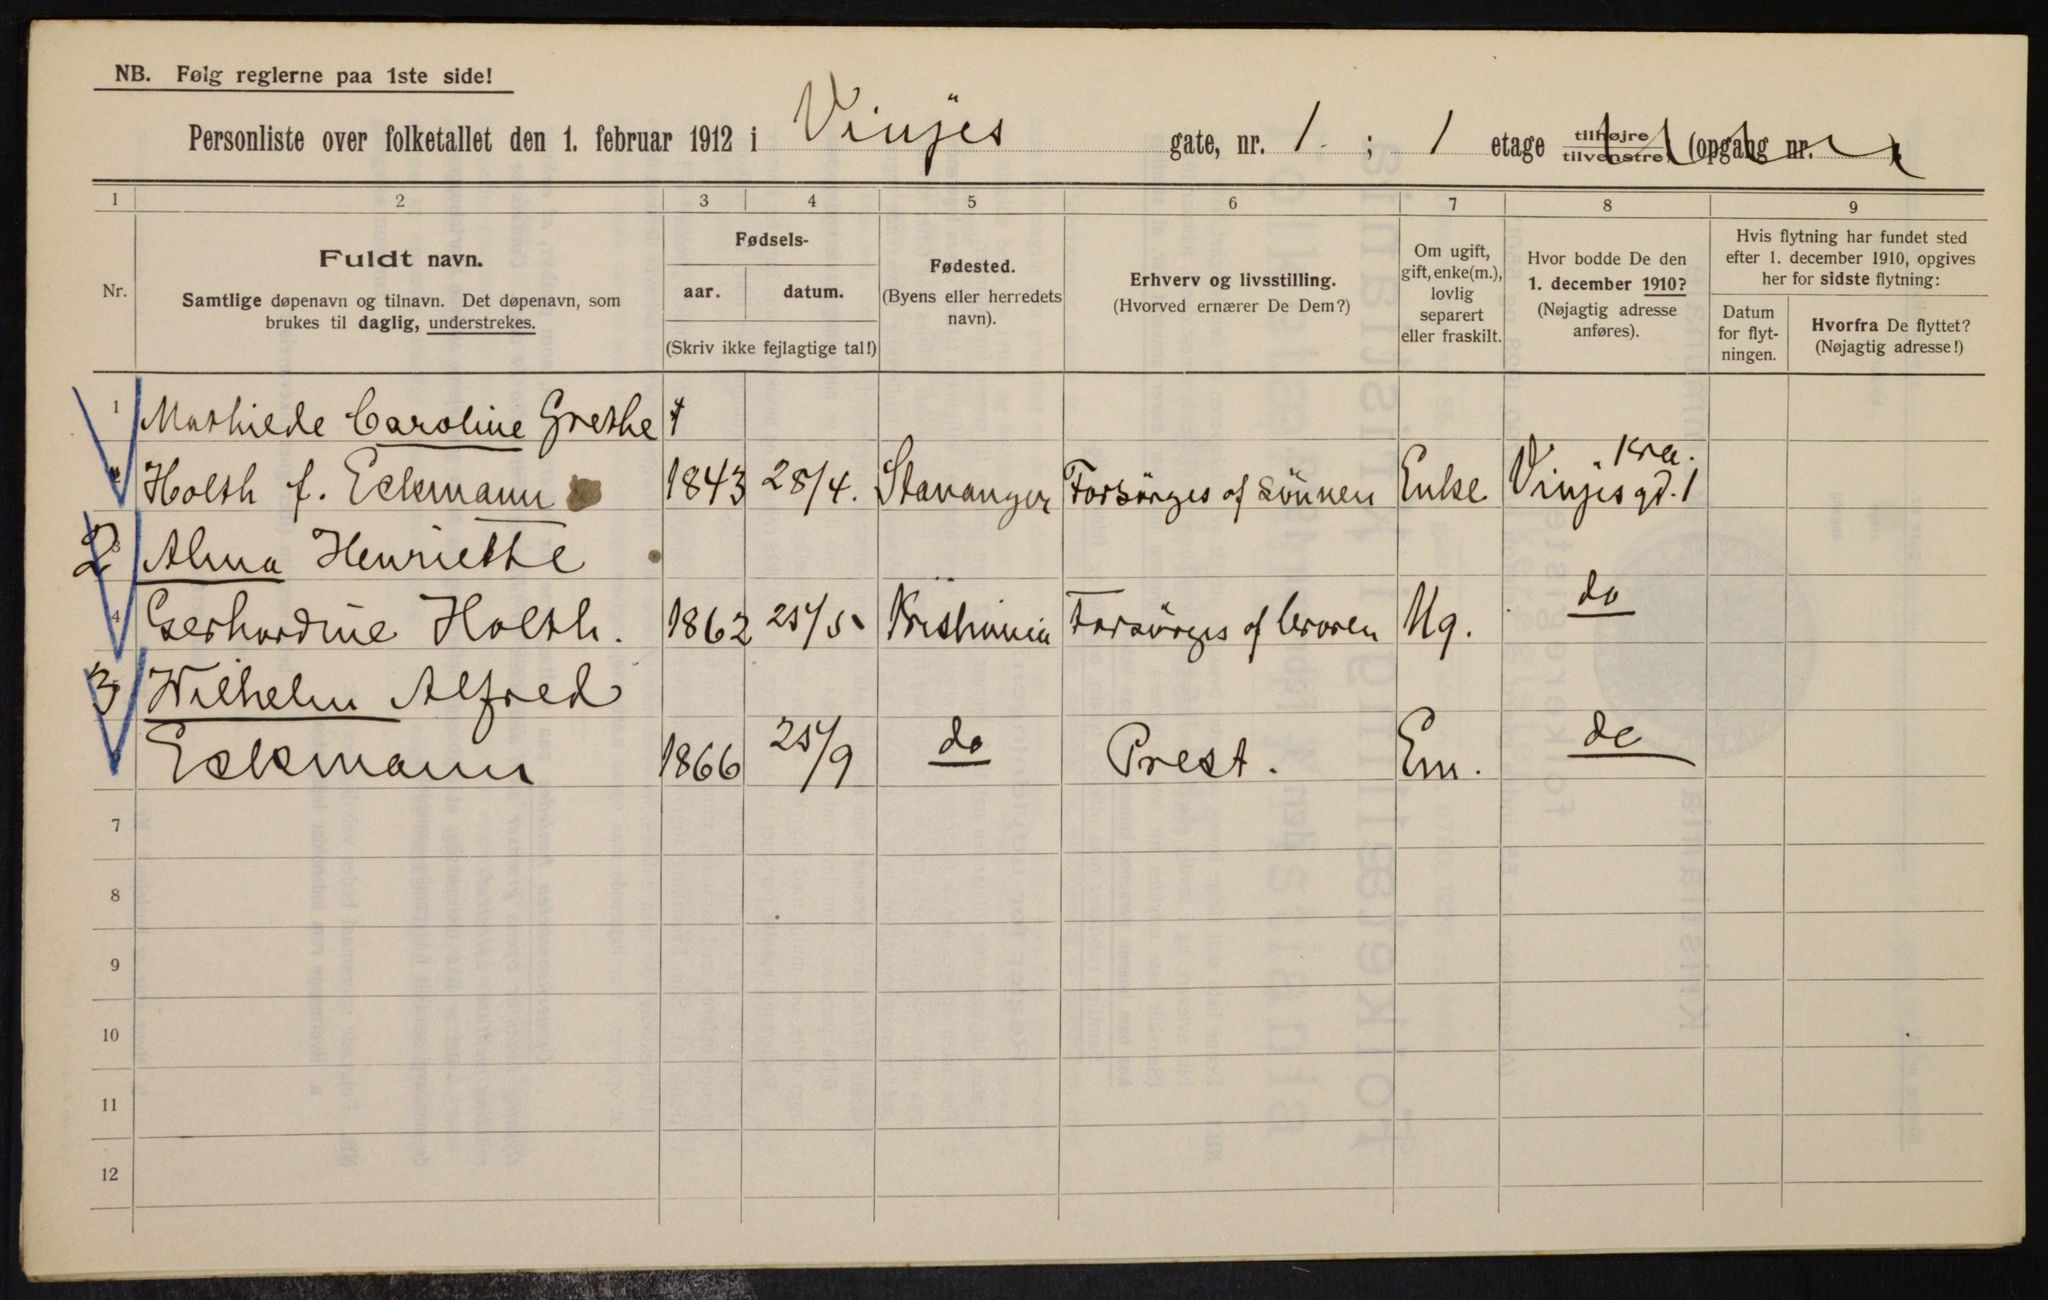 NB. Følg reglerne paa 1ste side!
Personliste over folketallet den 1. februar 1912 i Vinjes gate, nr. 1 ; 1 etage tilhøjre/tilvenstre, (opgang nr. ).
1 2 3 4 5 6 7 8 9
Nr.
Fuldt navn.
Samtlige døpenavn og tilnavn. Det døpenavn, som
brukes til daglig, understrekes.
Fødsels-
aar. datum.
(Skriv ikke fejlagtige tal!)
Fødested.
(Byens eller herredets
navn).
Erhverv og livsstilling.
(Hvorved ernærer De Dem?)
Om ugift,
gift, enke(m.),
lovlig
separert
eller fraskilt.
Hvor bodde De den
1. december 1910?
(Nøjagtig adresse
anføres).
Hvis flytning har fundet sted
efter 1. december 1910, opgives
her for sidste flytning:
Datum
for flyt-
ningen.
Hvorfra De flyttet?
(Nøjagtig adresse!)
1 Mathilde Caroline Grethe
Kra.
Holth f. Eckmann 1843 28/4. Stavanger Forsörges af Sönnen Enke Vinjesgd. 1
2 Alma Henriette
4 Gerhardine Holth. 1862 25/5 Kristiania Forsörges af Broren Ug. do
3 Wilhelm Alfred
Eckmann 1866 25/9 do Prest. Em. do
7
8
9
10
11
12